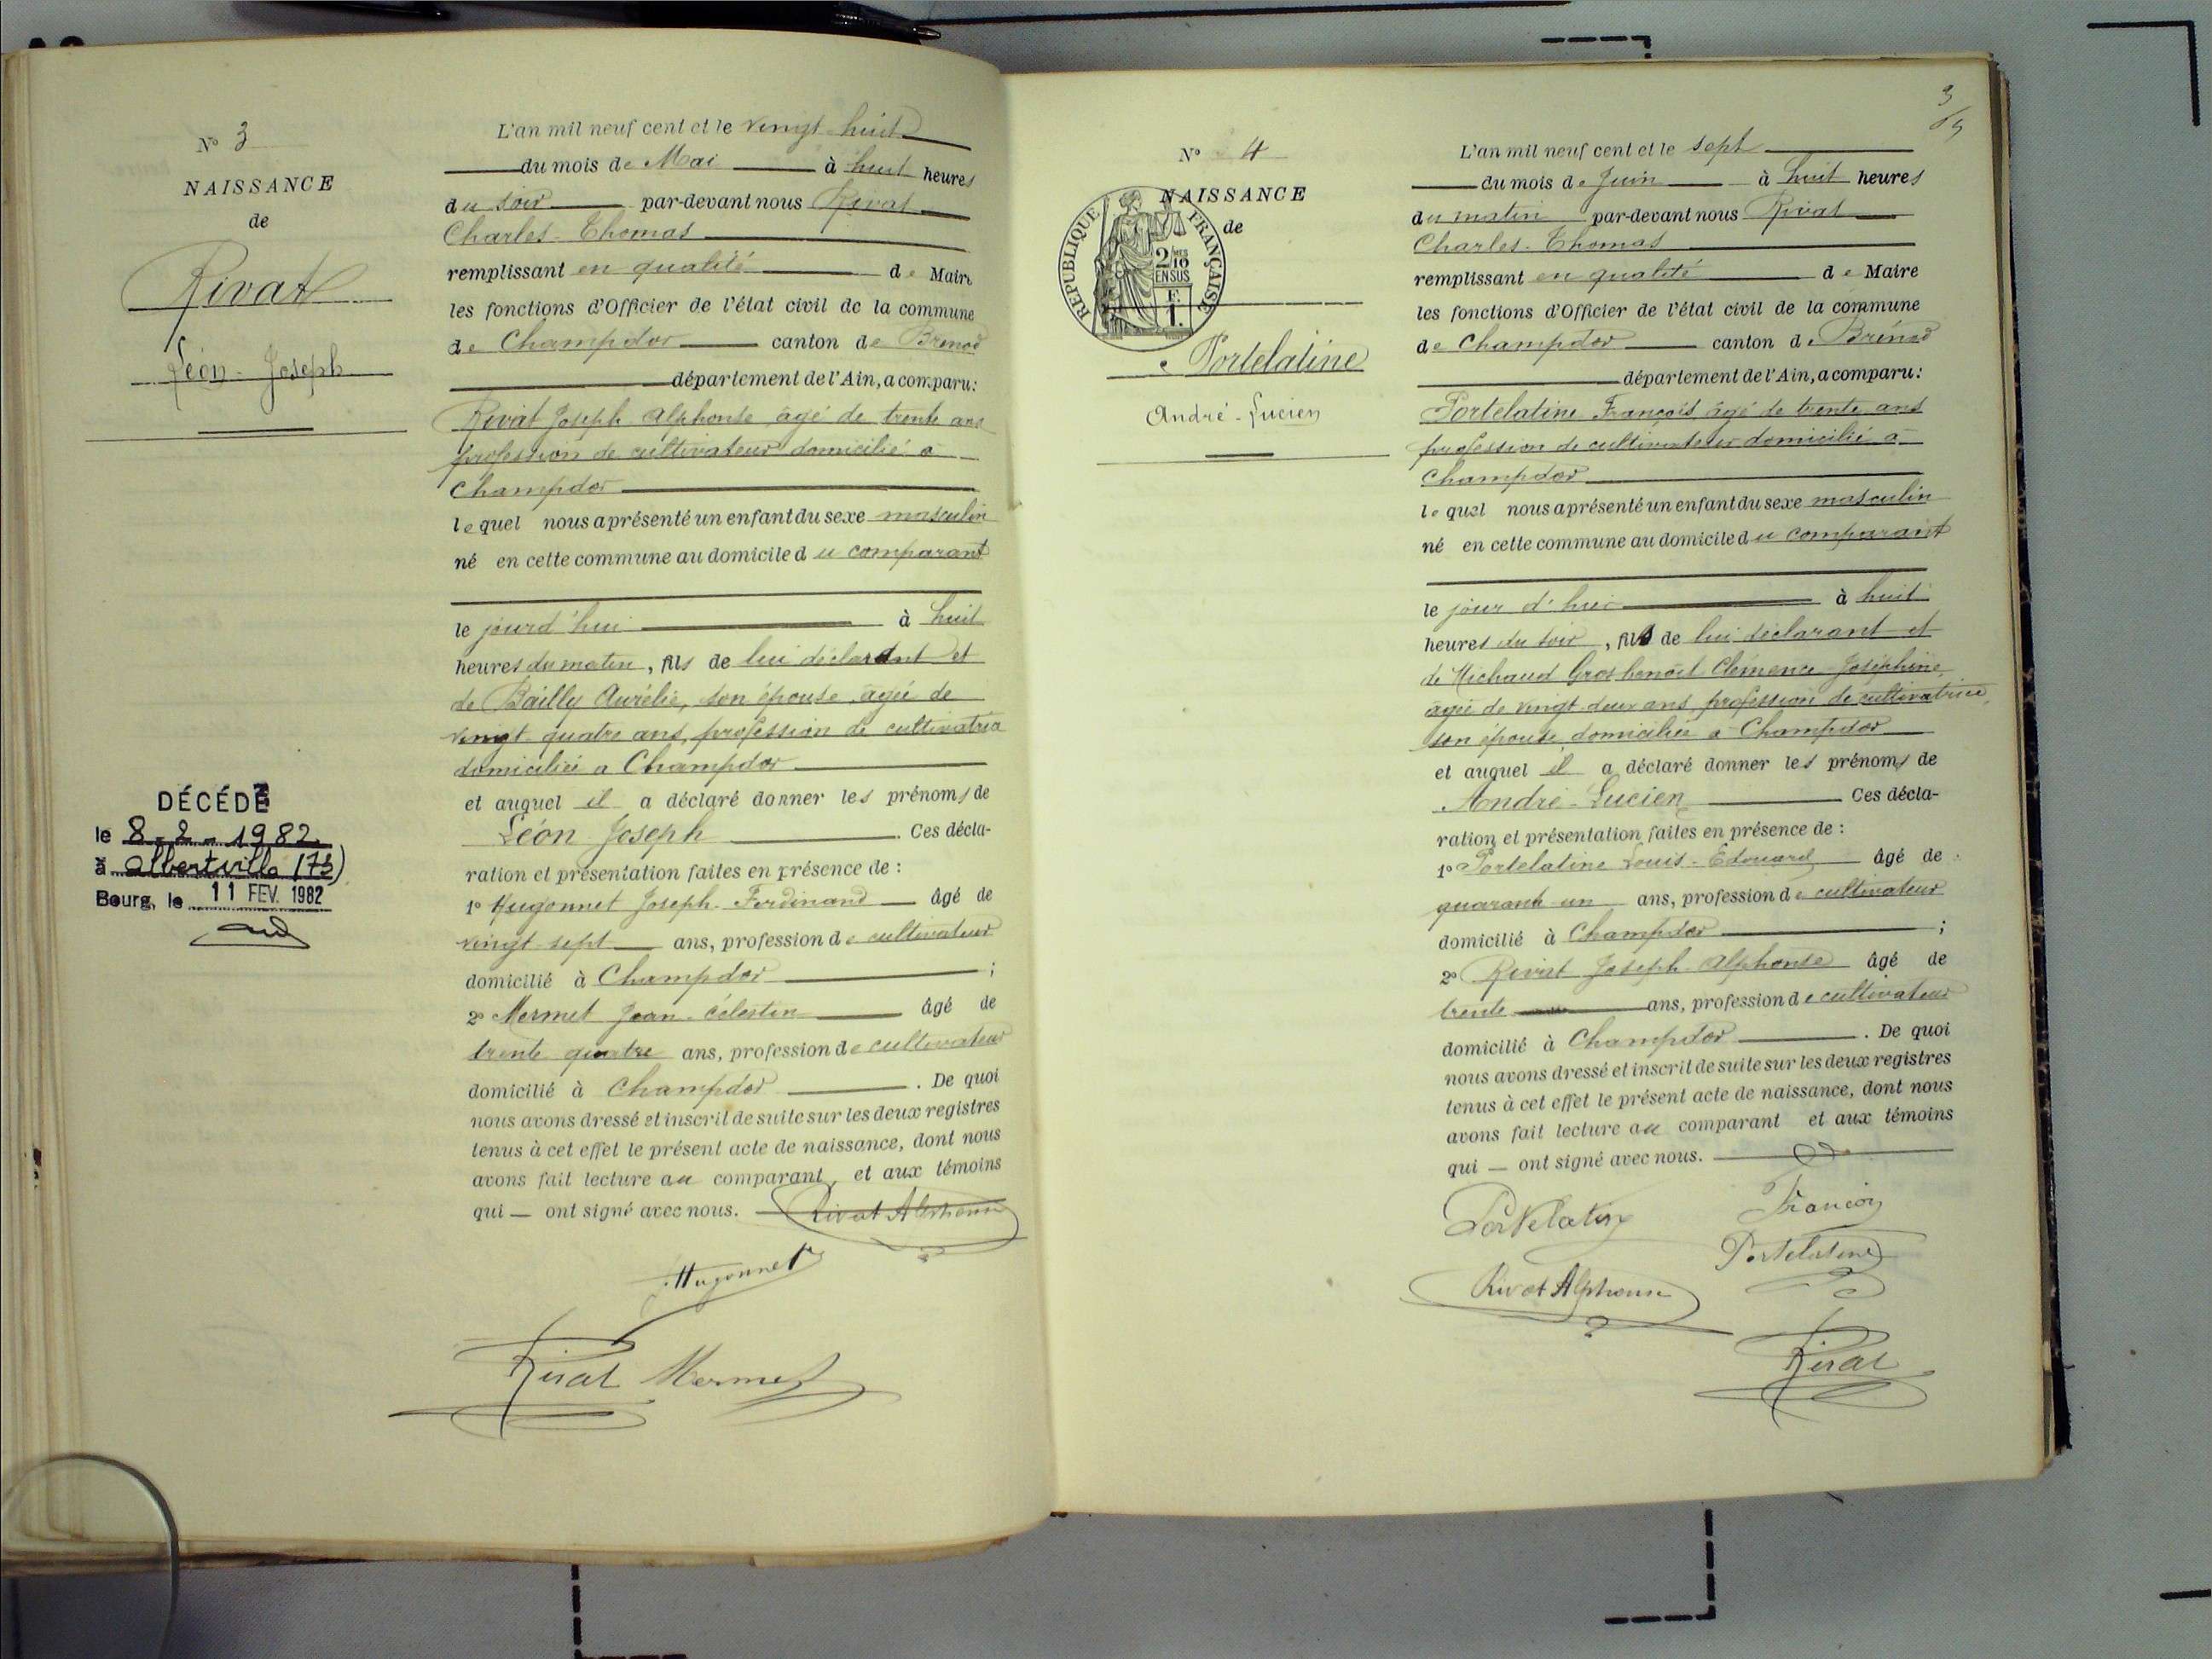 N° 3
NAISSANCE
de
Rivat
Léon-Joseph
DÉCÉDÉ
le 8-2-1982
à albertville (73)
Bourg, le 11 FEV. 1982
L'an mil neuf cent et le vingt-huit
du mois de Mai à huit heures
du soir par-devant nous Rivat
Charles-Thomas
remplissant en qualité de Maire
les fonctions d'Officier de l'état civil de la commune
de Champdor canton de Brenod
département de l'Ain, a comparu:
Rivat Joseph Alphonse âgé de trente ans
profession de cultivateur domicilié à
Champdor
lequel nous a présenté un enfant du sexe masculin
né en cette commune au domicile du comparant
le jourd'hui à huit
heures du matin, fils de lui déclarant et
de Bailly Aurélie, son épouse, âgée de
vingt-quatre ans, profession de cultivatrice
domiciliée a Champdor
et auquel il a déclaré donner les prénoms de
Léon Joseph. Ces décla-
ration et présentation faites en présence de :
1° Hugonnet Joseph-Ferdinand âgé de
vingt-sept ans, profession de cultivateur
domicilié à Champdor ;
2° Mermet Jean-Célestin âgé de
trente quatre ans, profession de cultivateur
domicilié à Champdor. De quoi
nous avons dressé et inscrit de suite sur les deux registres
tenus à cet effet le présent acte de naissance, dont nous
avons fait lecture au comparant, et aux témoins
qui — ont signé avec nous. Rivat Alphonse
Hugonnet
Rivat Mermet
3/5
N° 4
NAISSANCE
de
RÉPUBLIQUE FRANÇAISE
2/10
EN SUS
F.
1.
Portelatine
André-Lucien
L'an mil neuf cent et le sept
du mois de Juin à huit heures
du matin par-devant nous Rivat
Charles-Thomas
remplissant en qualité de Maire
les fonctions d'Officier de l'état civil de la commune
de Champdor canton de Brénod
département de l'Ain, a comparu:
Portelatine François, âgé de trente ans
profession de cultivateur domicilié à
Champdor
lequel nous a présenté un enfant du sexe masculin
né en cette commune au domicile du comparant
le jour d'hui à huit
heures du soir, fils de lui déclarant et
de Michaud Gros benoît Clémence-Joséphine,
âgée de vingt-deux ans profession de cultivatrice,
son épouse domiciliée à Champdor
et auquel il a déclaré donner les prénoms de
André-Lucien Ces décla-
ration et présentation faites en présence de :
1° Portelatine Louis-Edouard âgé de
quarante-un ans, profession de cultivateur
domicilié à Champdor ;
2° Rivat Joseph-Alphonse âgé de
trente ans, profession de cultivateur
domicilié à Champdor. De quoi
nous avons dressé et inscrit de suite sur les deux registres
tenus à cet effet le présent acte de naissance, dont nous
avons fait lecture au comparant et aux témoins
qui — ont signé avec nous.
Portelatine François
Portelatine
Rivat Alphonse
Rivat